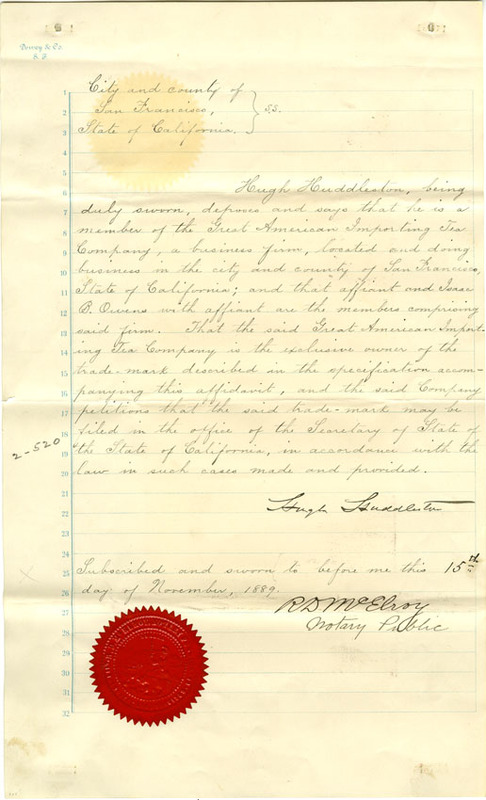 Dewey & Co.
S. F.
City and county of
San Francisco,
State of California.
} SS.
Hugh Huddleston, being
duly sworn, deposes and says that he is a
member of the Great American Importing Tea
Company, a business firm, located and doing
business in the city and county of San Francisco,
State of California; and that affiant and Isaac
B. Owens with affiant are the members comprising
said firm. That the said Great American Import-
ing Tea Company is the exclusive owner of the
trade-mark described in the specification accom-
panying this affidavit, and the said Company
petitions that the said trade-mark may be
filed in the office of the Secretary of State of
the State of California, in accordance with the
law in such cases made and provided.
2-520
Hugh Huddleston
Subscribed and sworn to before me this 15th
day of November, 1889.
R D McElroy
Notary Public
1
2
3
4
5
6
7
8
9
10
11
12
13
14
15
16
17
18
19
20
21
22
23
24
25
26
27
28
29
30
31
32